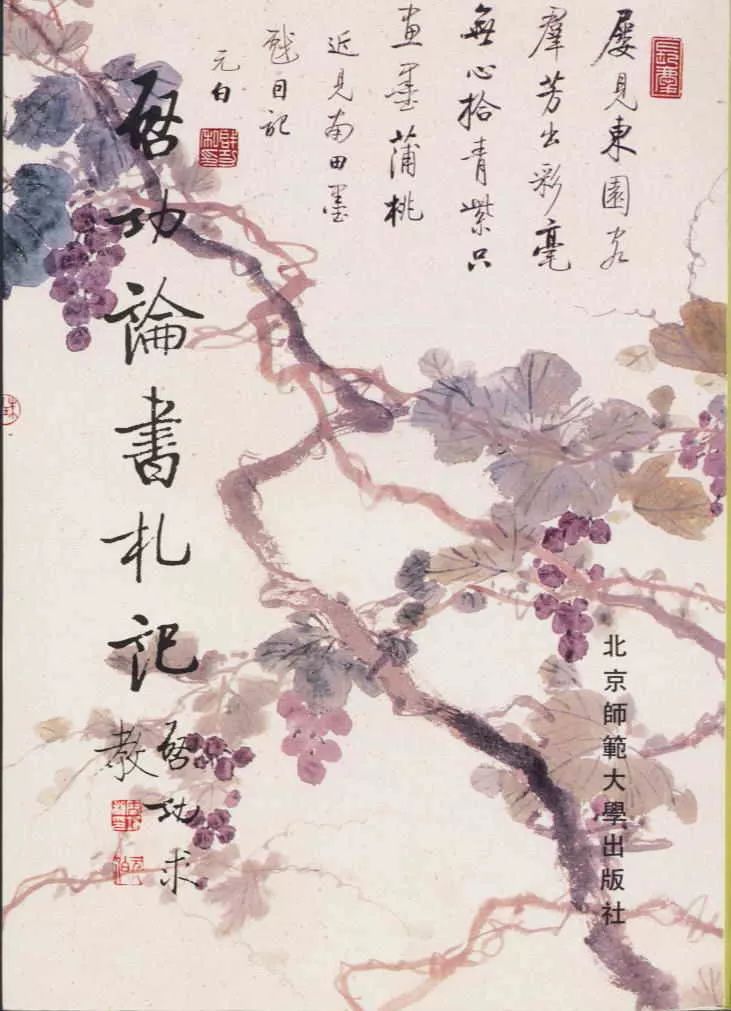 屢見東園客
羣芳出彩毫
無心拾青紫只
畫墨蒲桃
近見南田墨
戲因記
元白
啓功論書札記
啓功求
教
北京師範大學出版社